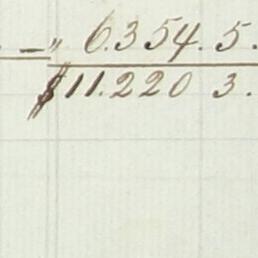 - „ 6.354. 5.
$11.220 3.